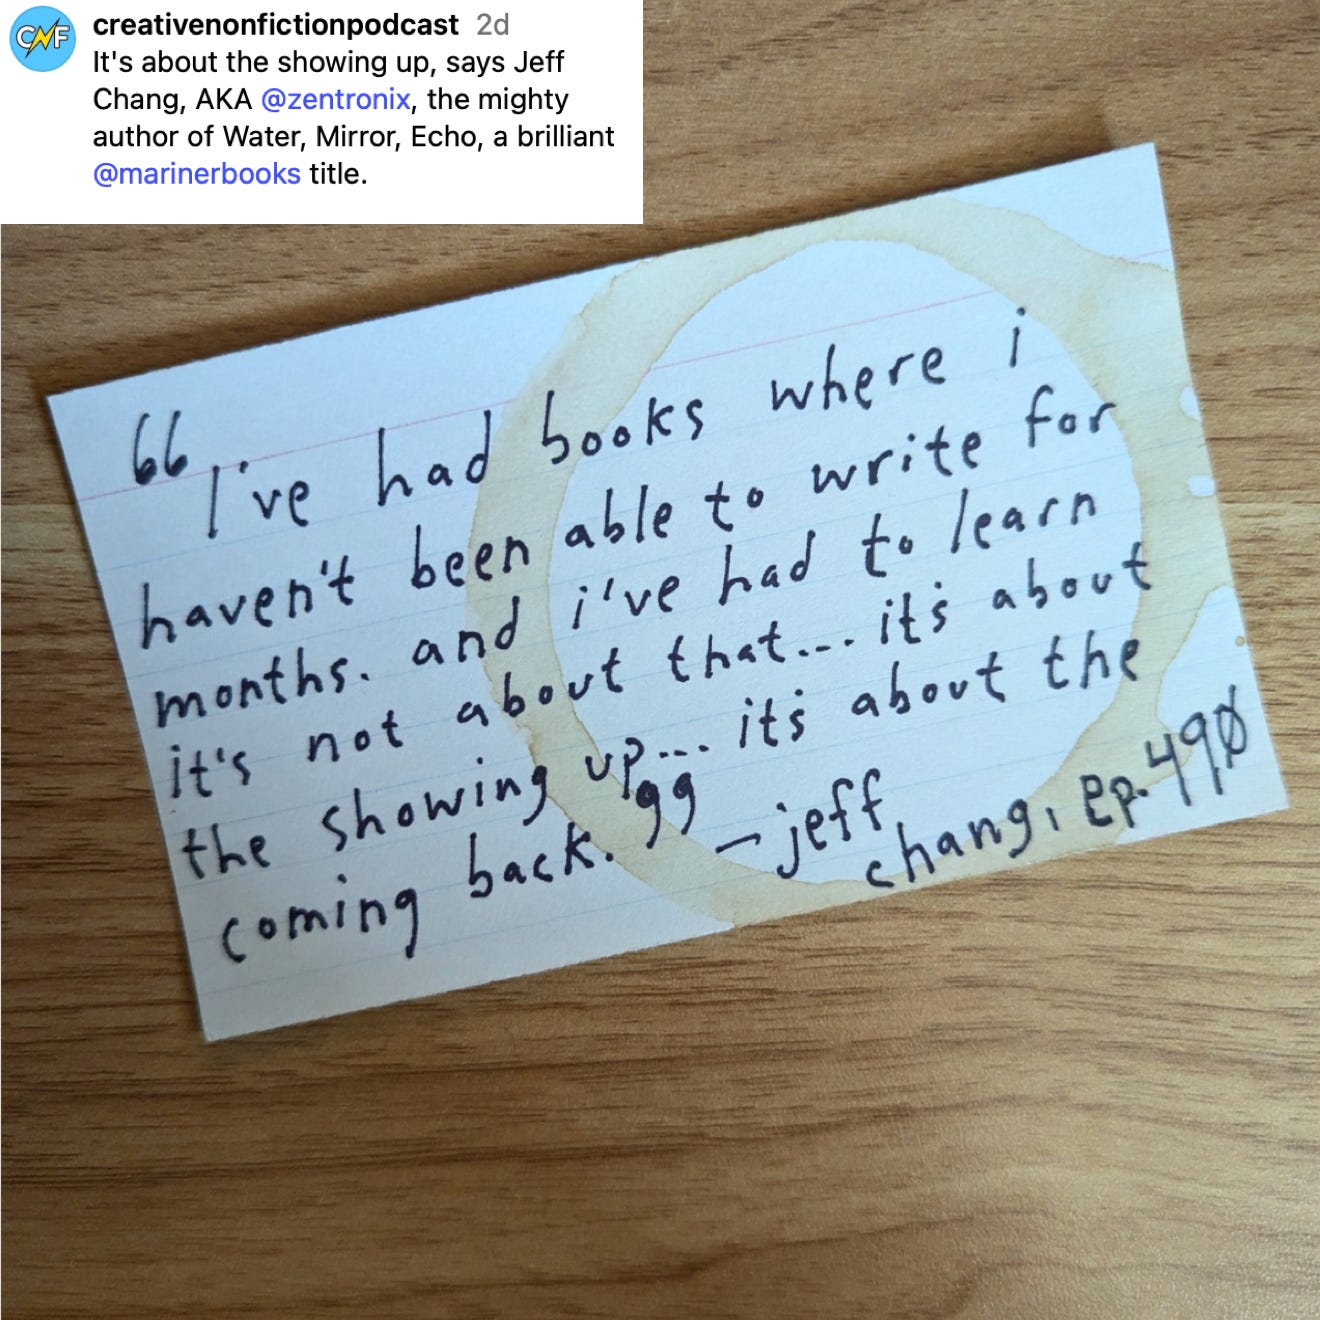 CNF
creativenonfictionpodcast 2d
It's about the showing up, says Jeff
Chang, AKA @zentronix, the mighty
author of Water, Mirror, Echo, a brilliant
@marinerbooks title.
“i've had books where i
haven't been able to write for
months. and i've had to learn
it's not about that... it's about
the showing up... it's about the
coming back.”
—jeff
chang, ep. 490